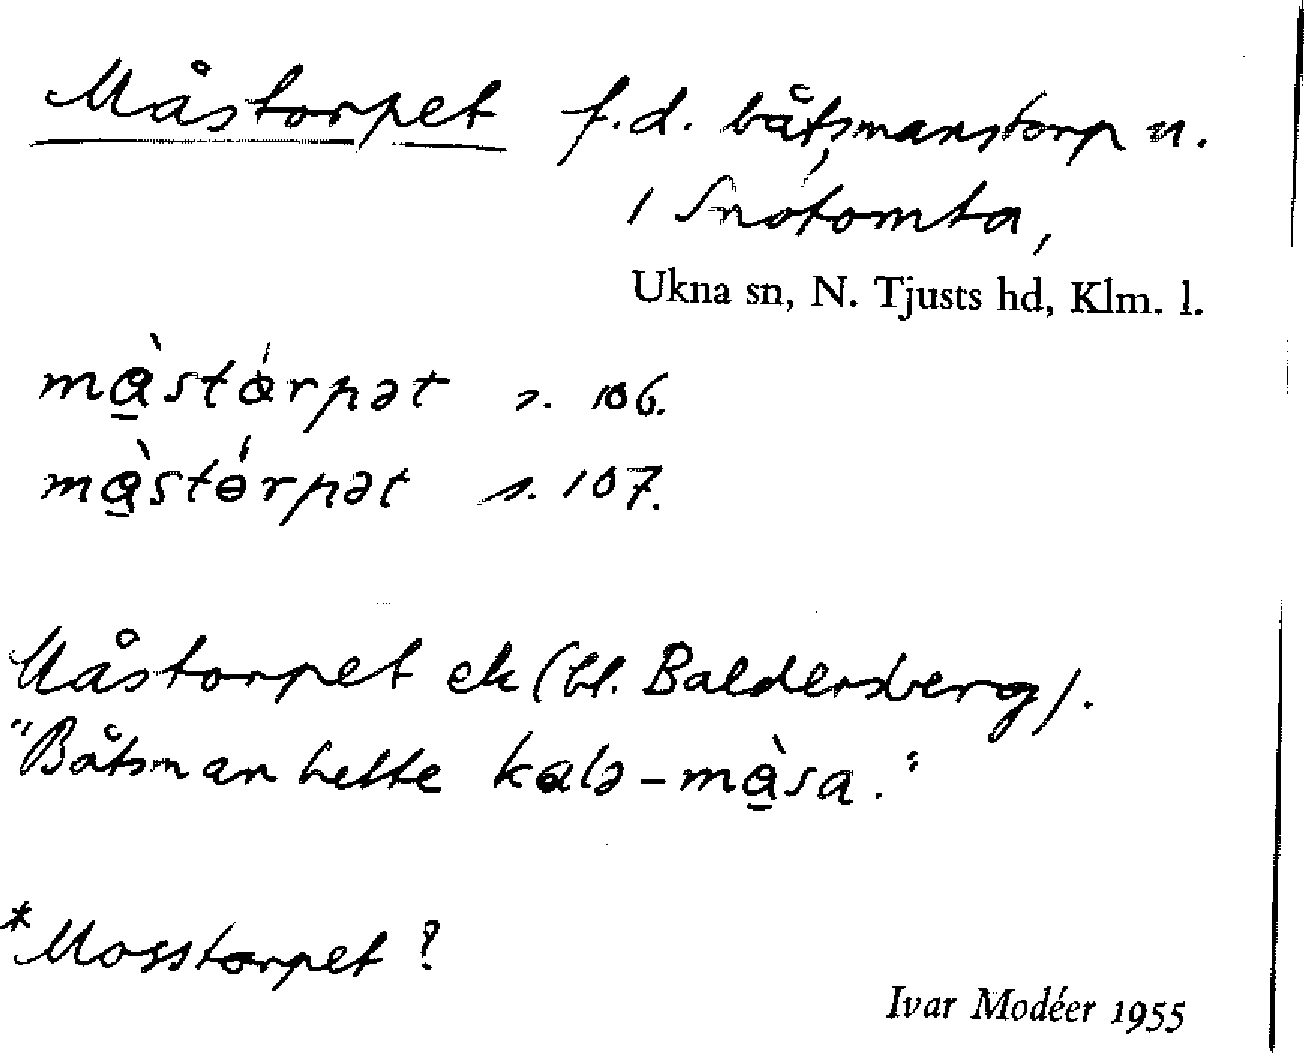 Måstorpet f.d. båtsmanstorp u.
/ Snotomta,
Ukna sn, N. Tjusts hd, Klm. l.
mɑ̠̀stɵ́rpət s. 106.
mɑ̠̀stɵ́rpət s. 107.
Måstorpet ek (bl. Baldersberg).
"Båtsman hette kalə-mɑ̠̀sa."
*Mosstorpet?
Ivar Modéer 1955